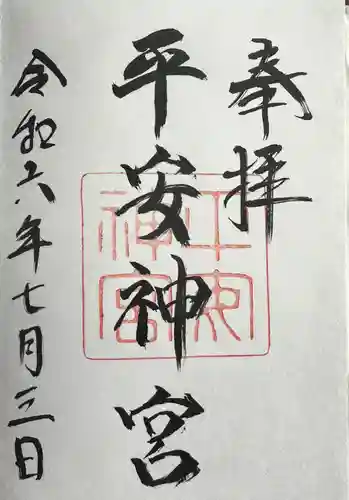 奉拝
平安神宮
平安神宮
令和六年七月三日